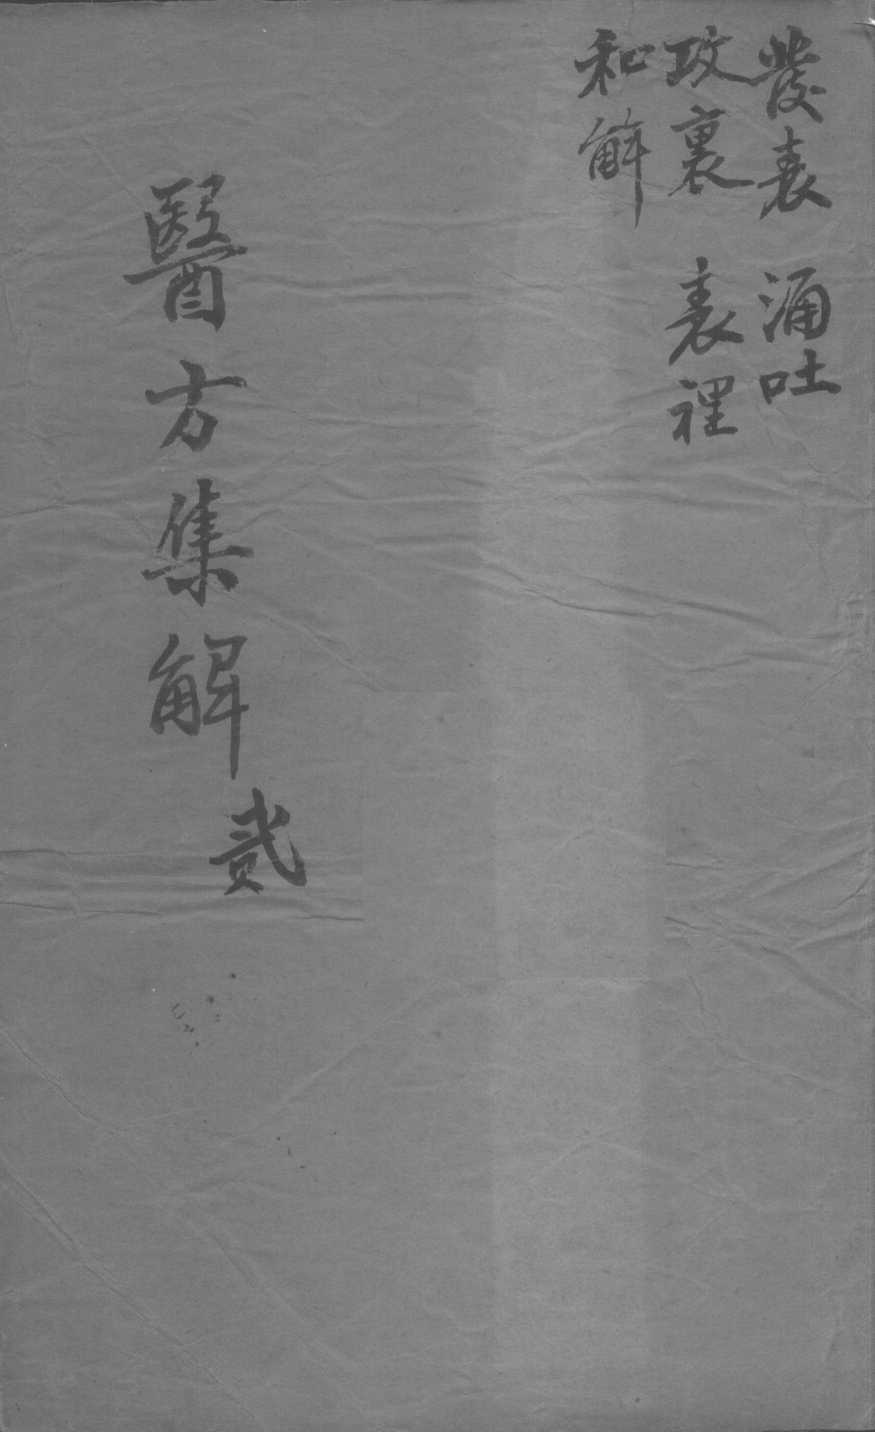 發表 涌吐
攻裏 表裡
和解
醫方集解
貳